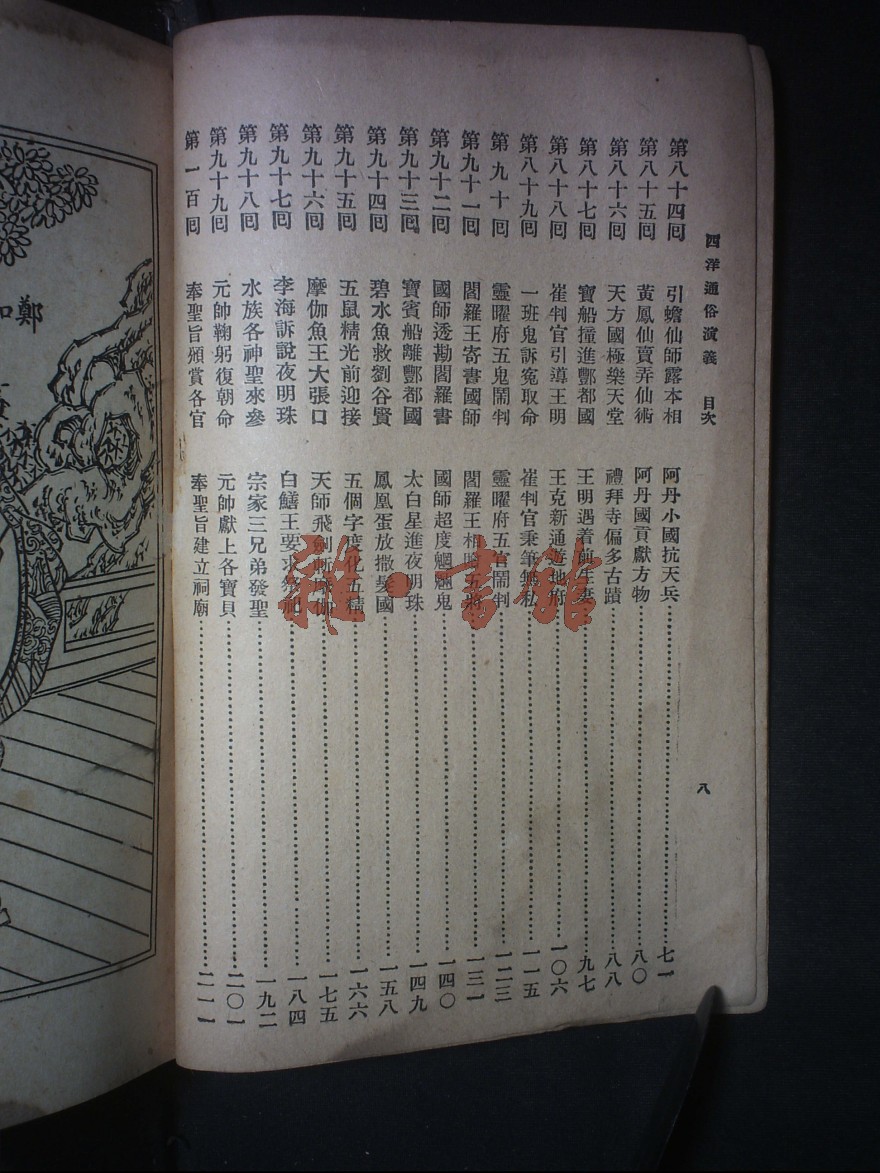 西洋通俗演義 目次
八
第八十四囘 引蟾仙師露本相 阿丹小國抗天兵 七一
第八十五囘 黃鳳仙賣弄仙術 阿丹國貢獻方物 八〇
第八十六囘 天方國極樂天堂 禮拜寺偏多古蹟 八八
第八十七囘 寶船撞進酆都國 王明遇着前生妻 九七
第八十八囘 崔判官引導王明 王克新通遊地府 一〇六
第八十九囘 一班鬼訴寃取命 崔判官秉筆無私 一一五
第九十囘 靈曜府五鬼鬧判 靈曜府五官鬧判 一二三
第九十一囘 閻羅王寄書國師 閻羅王相贈五將 一三一
第九十二囘 國師透勘閻羅書 國師超度魍魎鬼 一四〇
第九十三囘 寶賓船離酆都國 太白星進夜明珠 一四九
第九十四囘 碧水魚救劉谷賢 鳳凰蛋放撒髮國 一五八
第九十五囘 五鼠精光前迎接 五個字度化五精 一六六
第九十六囘 摩伽魚王大張口 天師飛劍斬摩伽 一七五
第九十七囘 李海訴說夜明珠 白鱔王要求祭祀 一八四
第九十八囘 水族各神聖來參 宗家三兄弟發聖 一九二
第九十九囘 元帥鞠躬復朝命 元帥獻上各寶貝 二〇一
第一百囘 奉聖旨頒賞各官 奉聖旨建立祠廟 二一一
鄭和
雜·書館